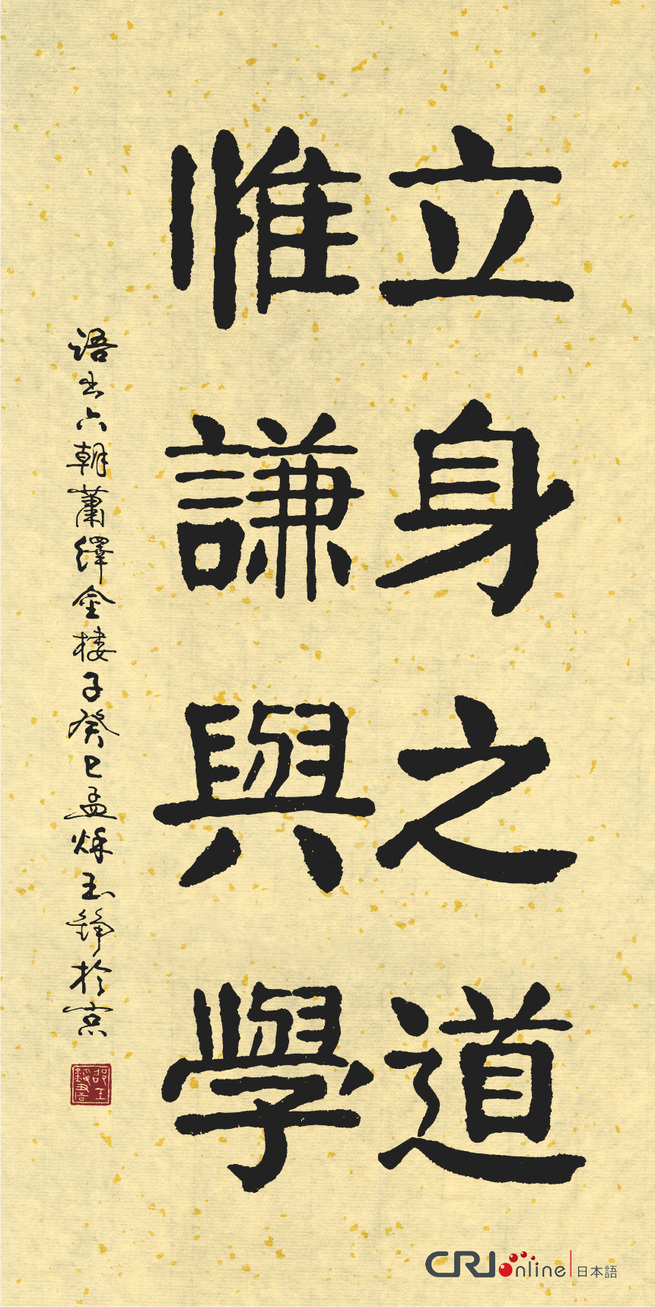 立身之道
惟謙與學
語出六朝蕭繹金樓子癸巳孟秌玉錚於京
CRIonline 日本語